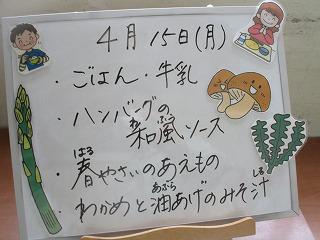 4月15日(月)
・ごはん・牛乳
・ハンバーグの
わふう
和風ソース
はる
・春やさいのあえもの
あぶら しる
・わかめと油あげのみそ汁